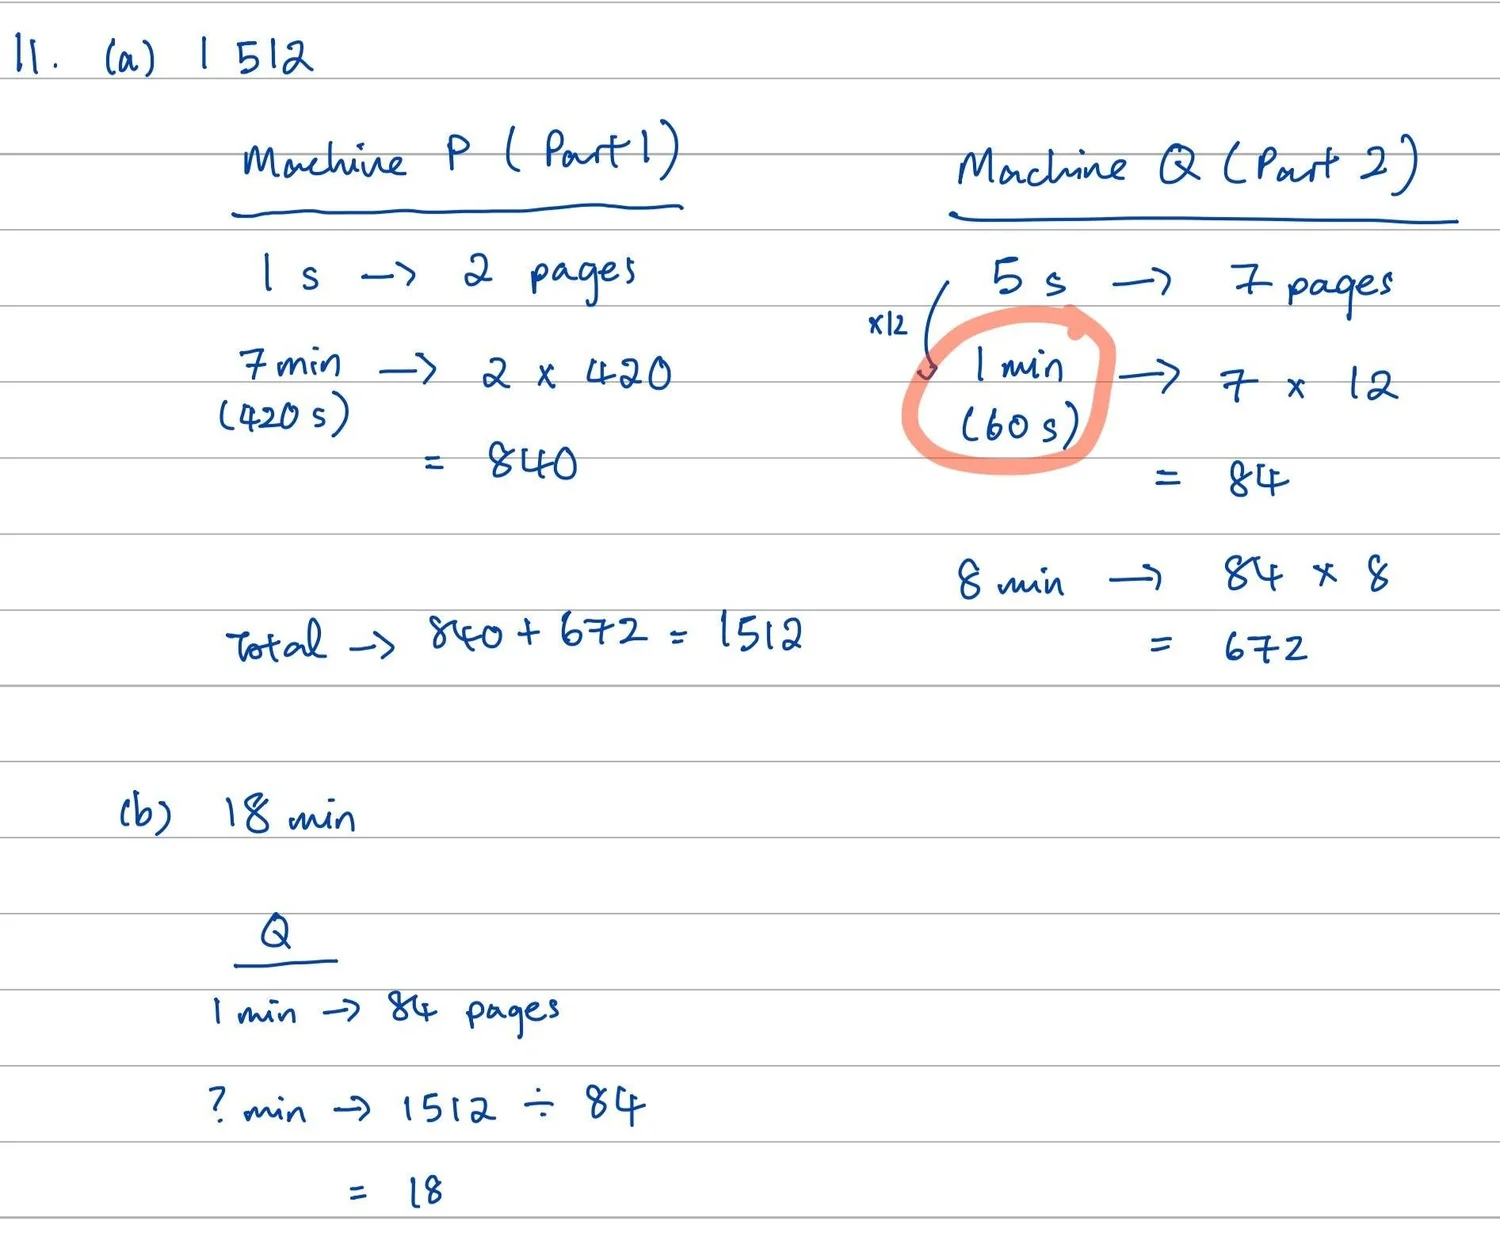 11. (a) 1 512
Machine P (Part 1)
1 s → 2 pages
7 min → 2 × 420
(420 s)
= 840
Machine Q (Part 2)
5 s → 7 pages
×12
1 min → 7 × 12
(60 s)
= 84
8 min → 84 × 8
= 672
Total → 840 + 672 = 1512
(b) 18 min
Q
1 min → 84 pages
? min → 1512 ÷ 84
= 18